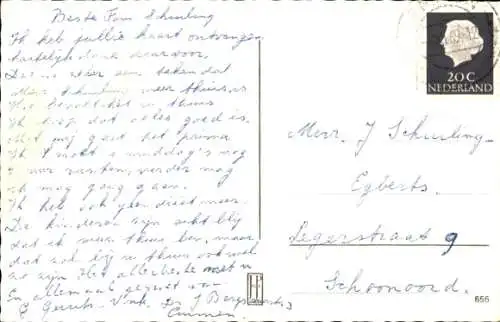 Beste Fam Schuiling
Ik heb jullie kaart ontvangen
hartelijk dank daarvoor.
Dit is weer een teken dat
Meer Schuiling weer thuis is
Hoe bevalt het in thuis
Ik hoop dat alles goed is.
Met mij gaat het prima
Ik moet 's middag's nog
2 uur rusten, verder mag
ik mijn gang gaan.
Ik heb ook geen dieet meer.
De kinderen zijn echt blij
dat ik weer thuis ben, maar
dat zal bij u thuis ook wel
zo zijn. Het allerbeste met u
En allemaal gegroet van
Emmen
20 C
NEDERLAND
Meer. J Schuiling
Egberts.
Legerstraat 9
Schoonoord.
656